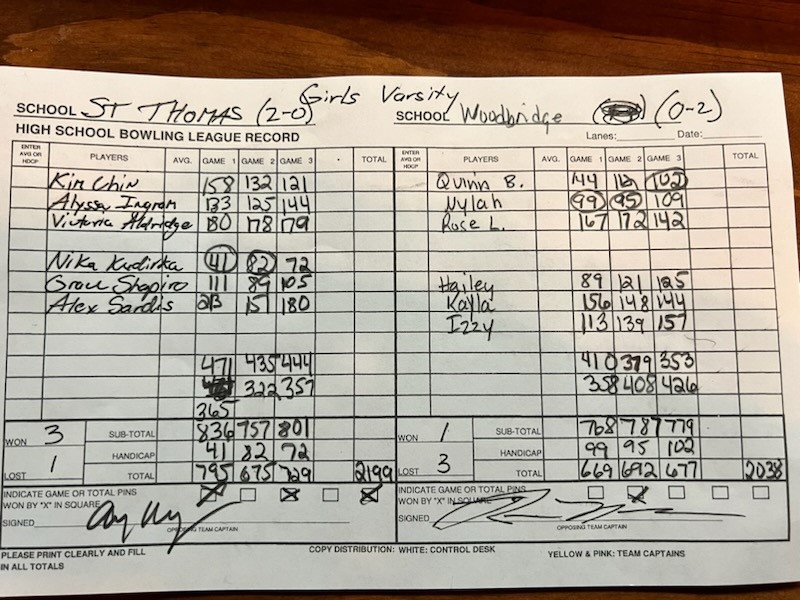 Girls Varsity
SCHOOL ST THOMAS (2-0) SCHOOL Woodbridge (0-2)
HIGH SCHOOL BOWLING LEAGUE RECORD Lanes: Date:
ENTER AVG OR HDCP PLAYERS AVG. GAME 1 GAME 2 GAME 3 TOTAL ENTER AVG OR HDCP PLAYERS AVG. GAME 1 GAME 2 GAME 3 TOTAL
Kim Chin 158 132 121 Quinn B. 144 112 102
Alyssa Ingram 133 125 144 Nylah 99 95 109
Victoria Aldridge 180 178 179 Rose L. 167 172 142
Nika Kudirka 41 82 72
Grace Shapiro 111 89 105 Hailey 89 121 125
Alex Sardis 213 151 180 Kayla 156 148 144
Izzy 113 139 157
471 435 444 410 379 353
322 357 358 408 426
365
WON 3 SUB-TOTAL 836 757 801 WON 1 SUB-TOTAL 768 787 779
HANDICAP 41 82 72 HANDICAP 99 95 102
LOST 1 TOTAL 795 675 729 2199 LOST 3 TOTAL 669 692 677 2038
INDICATE GAME OR TOTAL PINS INDICATE GAME OR TOTAL PINS
WON BY "X" IN SQUARE X X X WON BY "X" IN SQUARE X
SIGNED SIGNED
OPPOSING TEAM CAPTAIN OPPOSING TEAM CAPTAIN
PLEASE PRINT CLEARLY AND FILL IN ALL TOTALS COPY DISTRIBUTION: WHITE: CONTROL DESK YELLOW & PINK: TEAM CAPTAINS